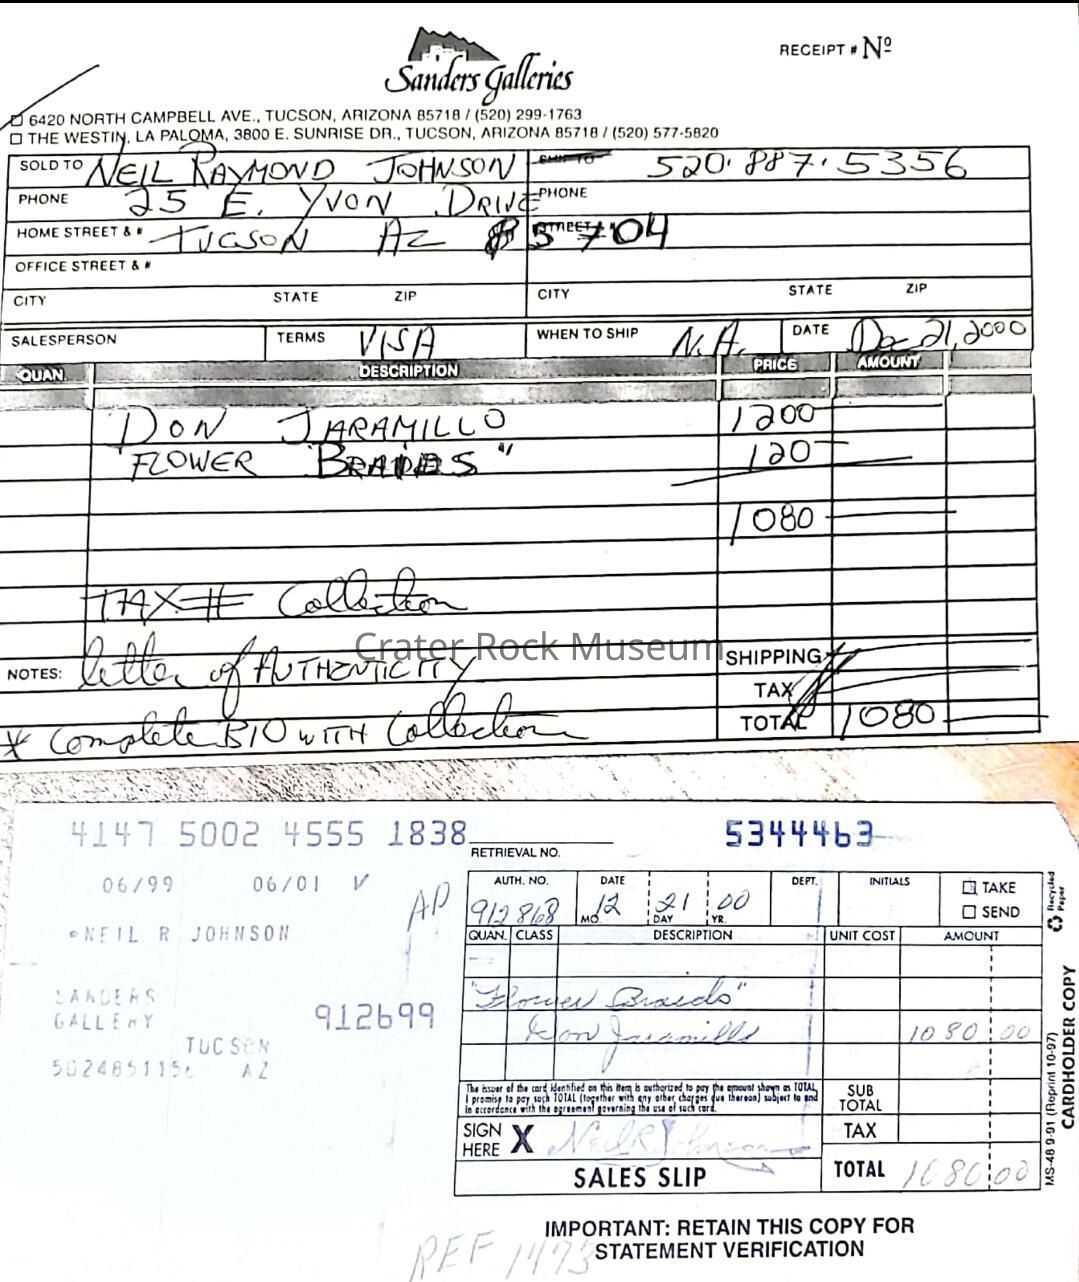 Sanders Galleries
RECEIPT # Nº
6420 NORTH CAMPBELL AVE., TUCSON, ARIZONA 85718 / (520) 299-1763
THE WESTIN, LA PALOMA, 3800 E. SUNRISE DR., TUCSON, ARIZONA 85718 / (520) 577-5820
SOLD TO NEIL RAYMOND JOHNSON SHIP TO 520.887.5356
PHONE 25 E. YVON DRIVE PHONE
HOME STREET & # TUCSON AZ 85704 STREET & #
OFFICE STREET & #
CITY STATE ZIP CITY STATE ZIP
SALESPERSON TERMS VISA WHEN TO SHIP N.A. DATE Dec 21, 2000
QUAN. DESCRIPTION PRICE AMOUNT
DON JARAMILLO 1200
FLOWER "BRAIDS" 120
1080
TAX # Collection
Crater Rock Museum
NOTES: letter of AUTHENTICITY SHIPPING
TAX
* Complete BIO WITH Collection TOTAL 1080
4147 5002 4555 1838 5344463
RETRIEVAL NO.
06/99 06/01 V
AP
AUTH. NO. DATE DEPT. INITIALS TAKE
912868 MO. 12 DAY 21 YR. 00 SEND
NEIL R JOHNSON
QUAN. CLASS DESCRIPTION UNIT COST AMOUNT
SANDERS
GALLERY 912699
"Flower Braids"
TUCSON
Don Jaramillo 1080 00
AZ
The issuer of the card identified on this item is authorized to pay the amount shown as TOTAL,
I promise to pay such TOTAL (together with any other charges due thereon) subject to and
in accordance with the agreement governing the use of such card.
SUB TOTAL
TAX
SIGN HERE X Neil R Johnson
SALES SLIP TOTAL 1080 00
Recycled Paper
CARDHOLDER COPY
MS-48 9-91 (Reprint 10-97)
IMPORTANT: RETAIN THIS COPY FOR
STATEMENT VERIFICATION
REF